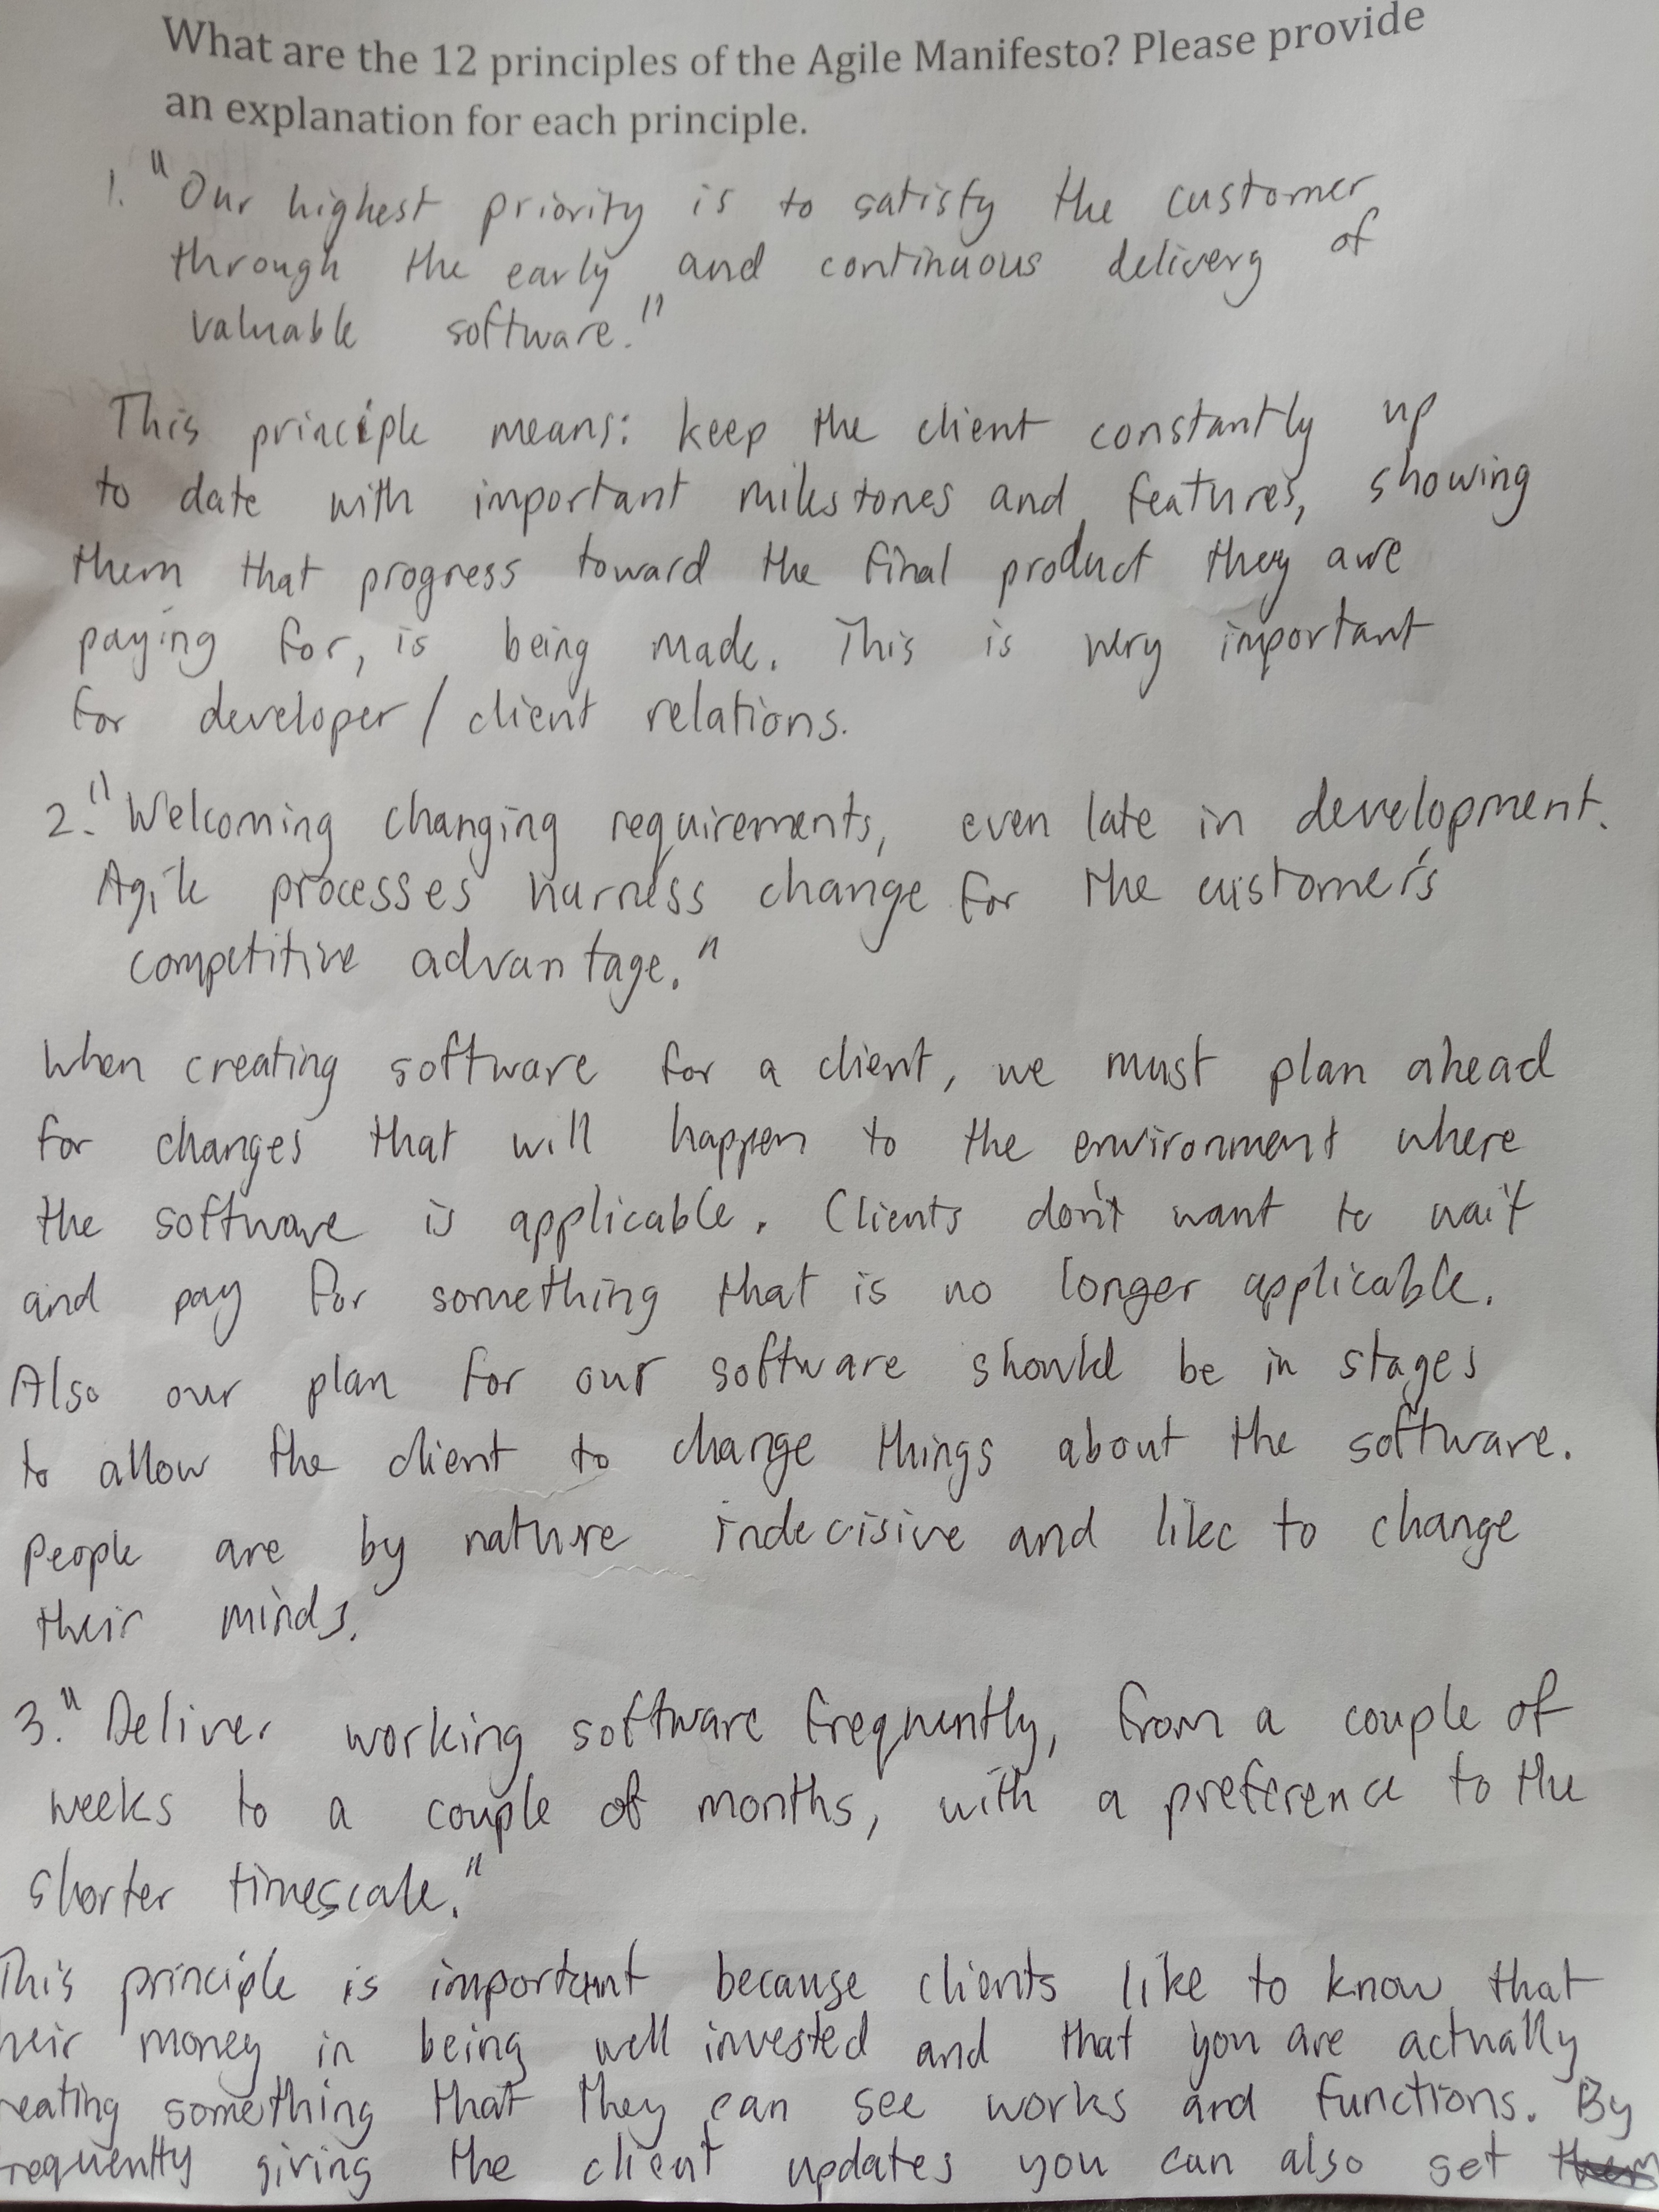 What are the 12 principles of the Agile Manifesto? Please provide
an explanation for each principle.
1. "Our highest priority is to satisfy the customer
through the early and continuous delivery of
valuable software."
This principle means: keep the client constantly up
to date with important milestones and features, showing
them that progress toward the final product they are
paying for, is being made. This is very important
for developer/client relations.
2. "Welcoming changing requirements, even late in development.
Agile processes harness change for the customer's
competitive advantage."
When creating software for a client, we must plan ahead
for changes that will happen to the environment where
the software is applicable. Clients don't want to wait
and pay for something that is no longer applicable.
Also our plan for our software should be in stages
to allow the client to change things about the software.
People are by nature indecisive and like to change
their minds.
3. "Deliver working software frequently, from a couple of
weeks to a couple of months, with a preference to the
shorter timescale."
This principle is important because clients like to know that
heir money in being well invested and that you are actually
reating something that they can see works and functions. By
requently giving the client updates you can also set